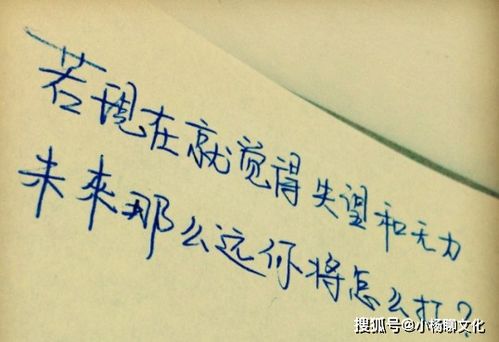 若現在就觉得失望和无力
未來那么远你将怎么打?
搜狐号@小杨聊文化